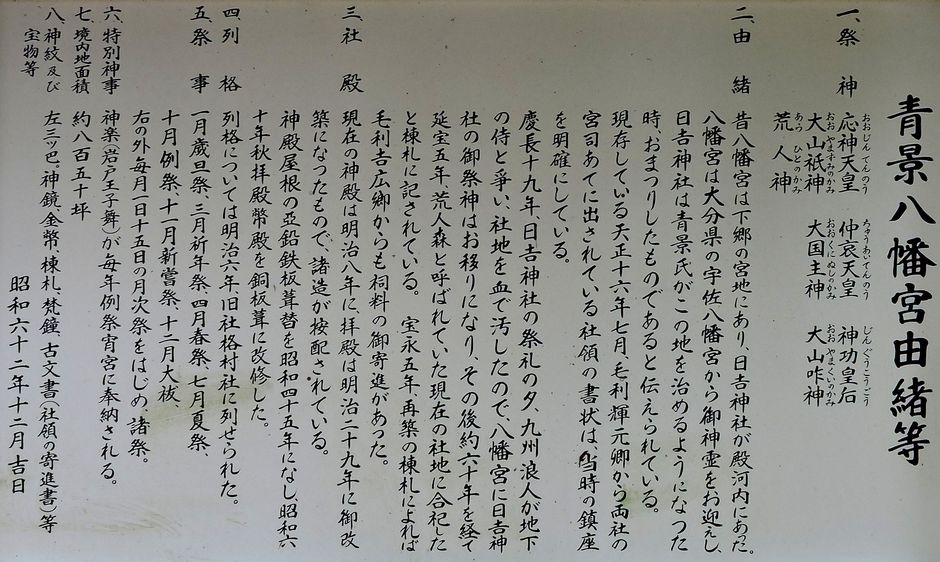 青景八幡宮由緒等
一、祭神 応神天皇 仲哀天皇 神功皇后
おおじんてんのう ちゅうわいてんのう じんぐうこうごう
大山祇神 大国主神 大山咋神
おおやまずみのかみ おおくにぬしのかみ おおやまくいのかみ
荒人神
あらひとのかみ
二、由緒 昔八幡宮は下郷の宮地にあり、日吉神社が殿河内にあった。
八幡宮は大分県の宇佐八幡宮から御神霊をお迎えし、
日吉神社は青景氏がこの地を治めるようになった
時、おまつりしたものであると伝えられている。
現存している天正十六年七月、毛利輝元卿から両社の
宮司あてに出されている社領の書状は、当時の鎮座
を明確にしている。
慶長十九年、日吉神社の祭礼の夕、九州浪人が地下
の侍と争い、社地を血で汚したので、八幡宮に日吉神
社の御祭神はお移りになり、その後約六十年を経て
延宝五年 荒人森と呼ばれていた現在の社地に合祀した
と棟札に記されている。 宝永五年、再築の棟札によれば
毛利吉広卿からも祠料の御寄進があった。
三、社殿 現在の神殿は明治八年に、拝殿は明治二十九年に御改
築になったもので、諸造が按配されている。
神殿屋根の亜鉛鉄板葺替を昭和四十五年になし、昭和六
十年秋拝殿幣殿を銅板葺に改修した。
四、列格 列格については明治六年旧社格村社に列せられた。
五、祭事 一月歳旦祭、三月祈年祭、四月春祭、七月夏祭、
十月例祭、十一月新嘗祭、十二月大祓、
右の外毎月一日十五日の月次祭をはじめ、諸祭。
六、特別神事 神楽(岩戸王子舞)が毎年例祭宵宮に奉納される。
七、境内地面積 約八百五十坪
八、神紋及び 左三ッ巴。神鏡、金幣、棟札、梵鐘、古文書(社領の寄進書)等
宝物等
昭和六十二年十二月吉日